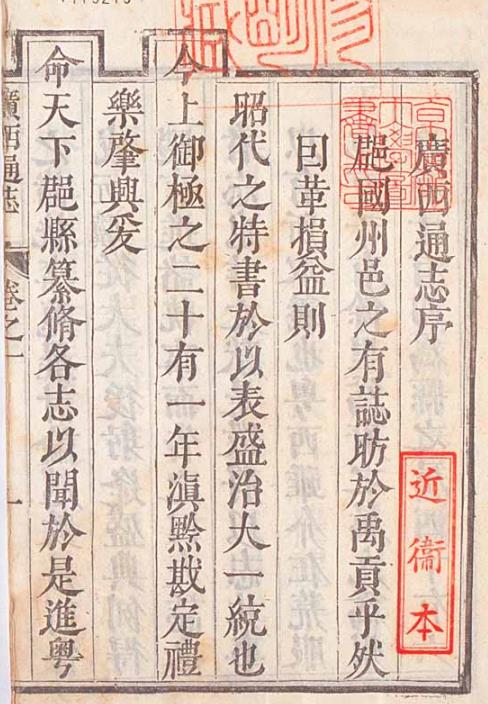 廣西通志序
郡國州邑之有誌昉於禹貢乎然
囙革損益則
昭代之特書於以表盛治大一統也
今
上御極之二十有一年滇黔戡定禮
樂肇興爰
命天下郡縣纂脩各志以聞於是進粤
廣西通志
卷之一
一
近衞本